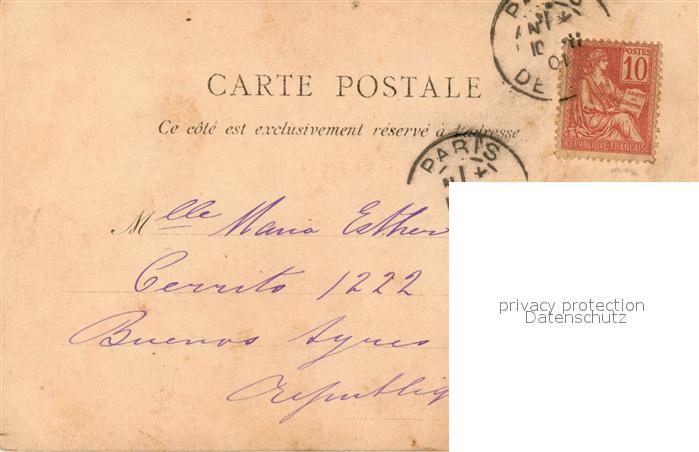 CARTE POSTALE
Ce côté est exclusivement réservé à l'adresse
POSTES
10
REPUBLIQUE FRANÇAISE
PARIS
Mlle Maria Esther
Cerrito 1222
Buenos Ayres
Republiq
privacy protection
Datenschutz